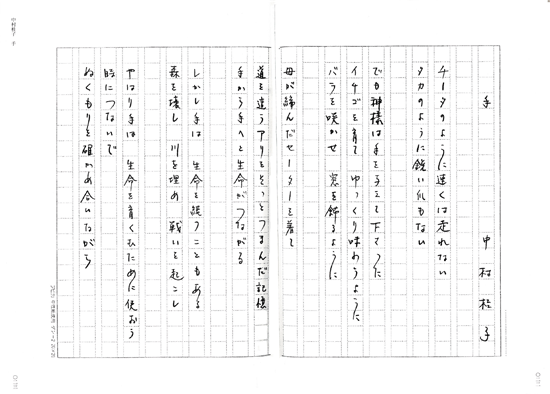 手
中村桂子
チータのように速くは走れない
タカのように鋭い爪もない
でも神様は手を与えて下さった
イチゴを育て ゆっくり味わうように
バラを咲かせ 窓を飾るように
母が編んだセーターを着て
道を這うアリをそっとつまんだ記憶
手から手へと生命がつながる
しかし手は 生命を絶つこともある
森を壊し 川を埋め 戦いを起こし
やはり手は 生命を育くむために使おう
時につないで
ぬくもりを確かめ合いながら